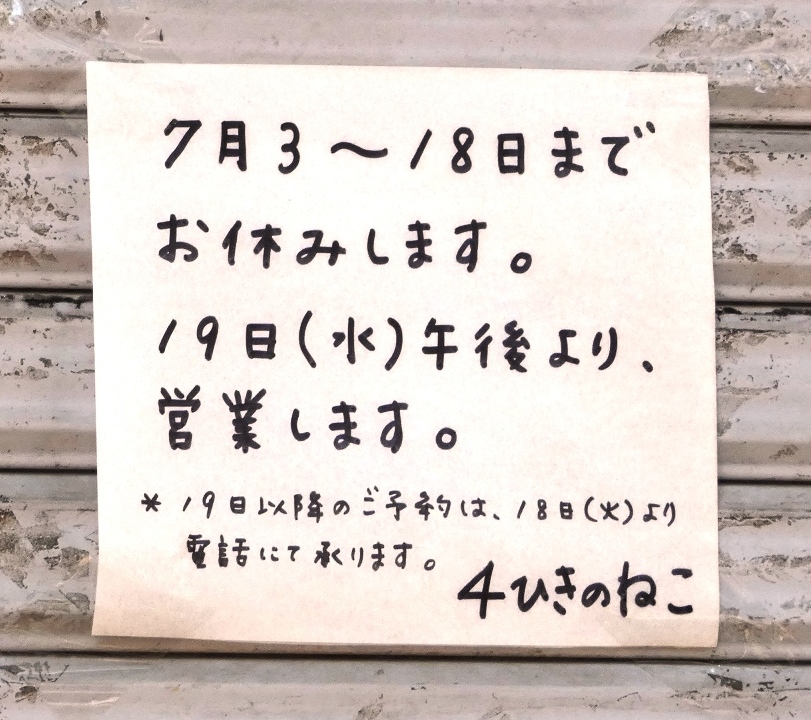 7月3〜18日まで
お休みします。
19日(水)午後より、
営業します。
* 19日以降のご予約は、18日(火)より
電話にて承ります。
4ひきのねこ